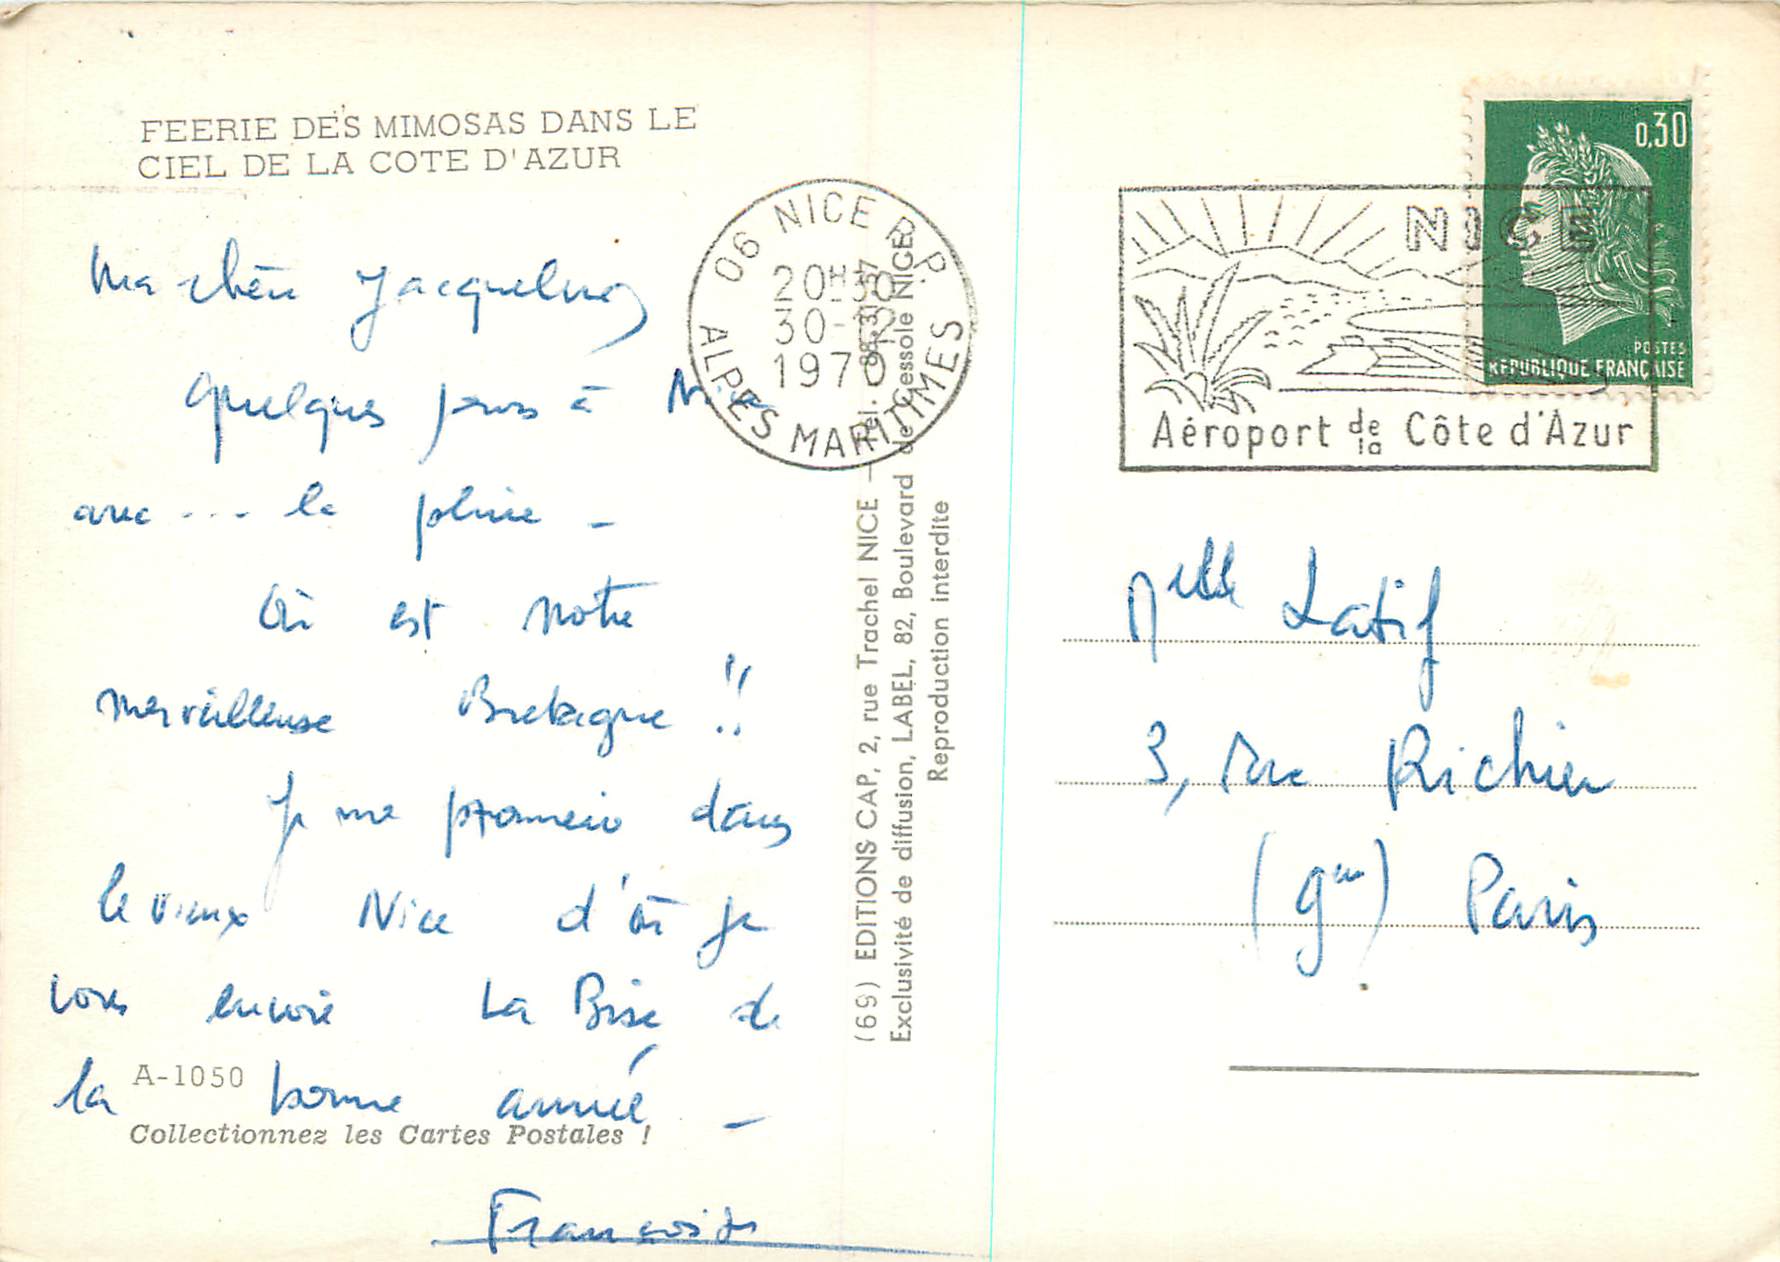 FEERIE DES MIMOSAS DANS LE
CIEL DE LA COTE D'AZUR
Ma chère Jacqueline
quelques jours à Nice
avec ... la pluie -
Où est notre
merveilleuse Bretagne !!
Je me promène dans
le vieux Nice d'où je
vous envoie La Bise de
la bonne année -
Françoise
A-1050
Collectionnez les Cartes Postales !
(69) EDITIONS CAP, 2, rue Trachel NICE - Tél. 88-31-57
Exclusivité de diffusion, LABEL, 82, Boulevard de Cessole NICE
Reproduction interdite
06 NICE R.P.
20H30
30-12
1970
ALPES MARITIMES
NICE
Aéroport de la Côte d'Azur
0,30
POSTES
REPUBLIQUE FRANÇAISE
Melle Latif
3, rue Richer
(9em) Paris